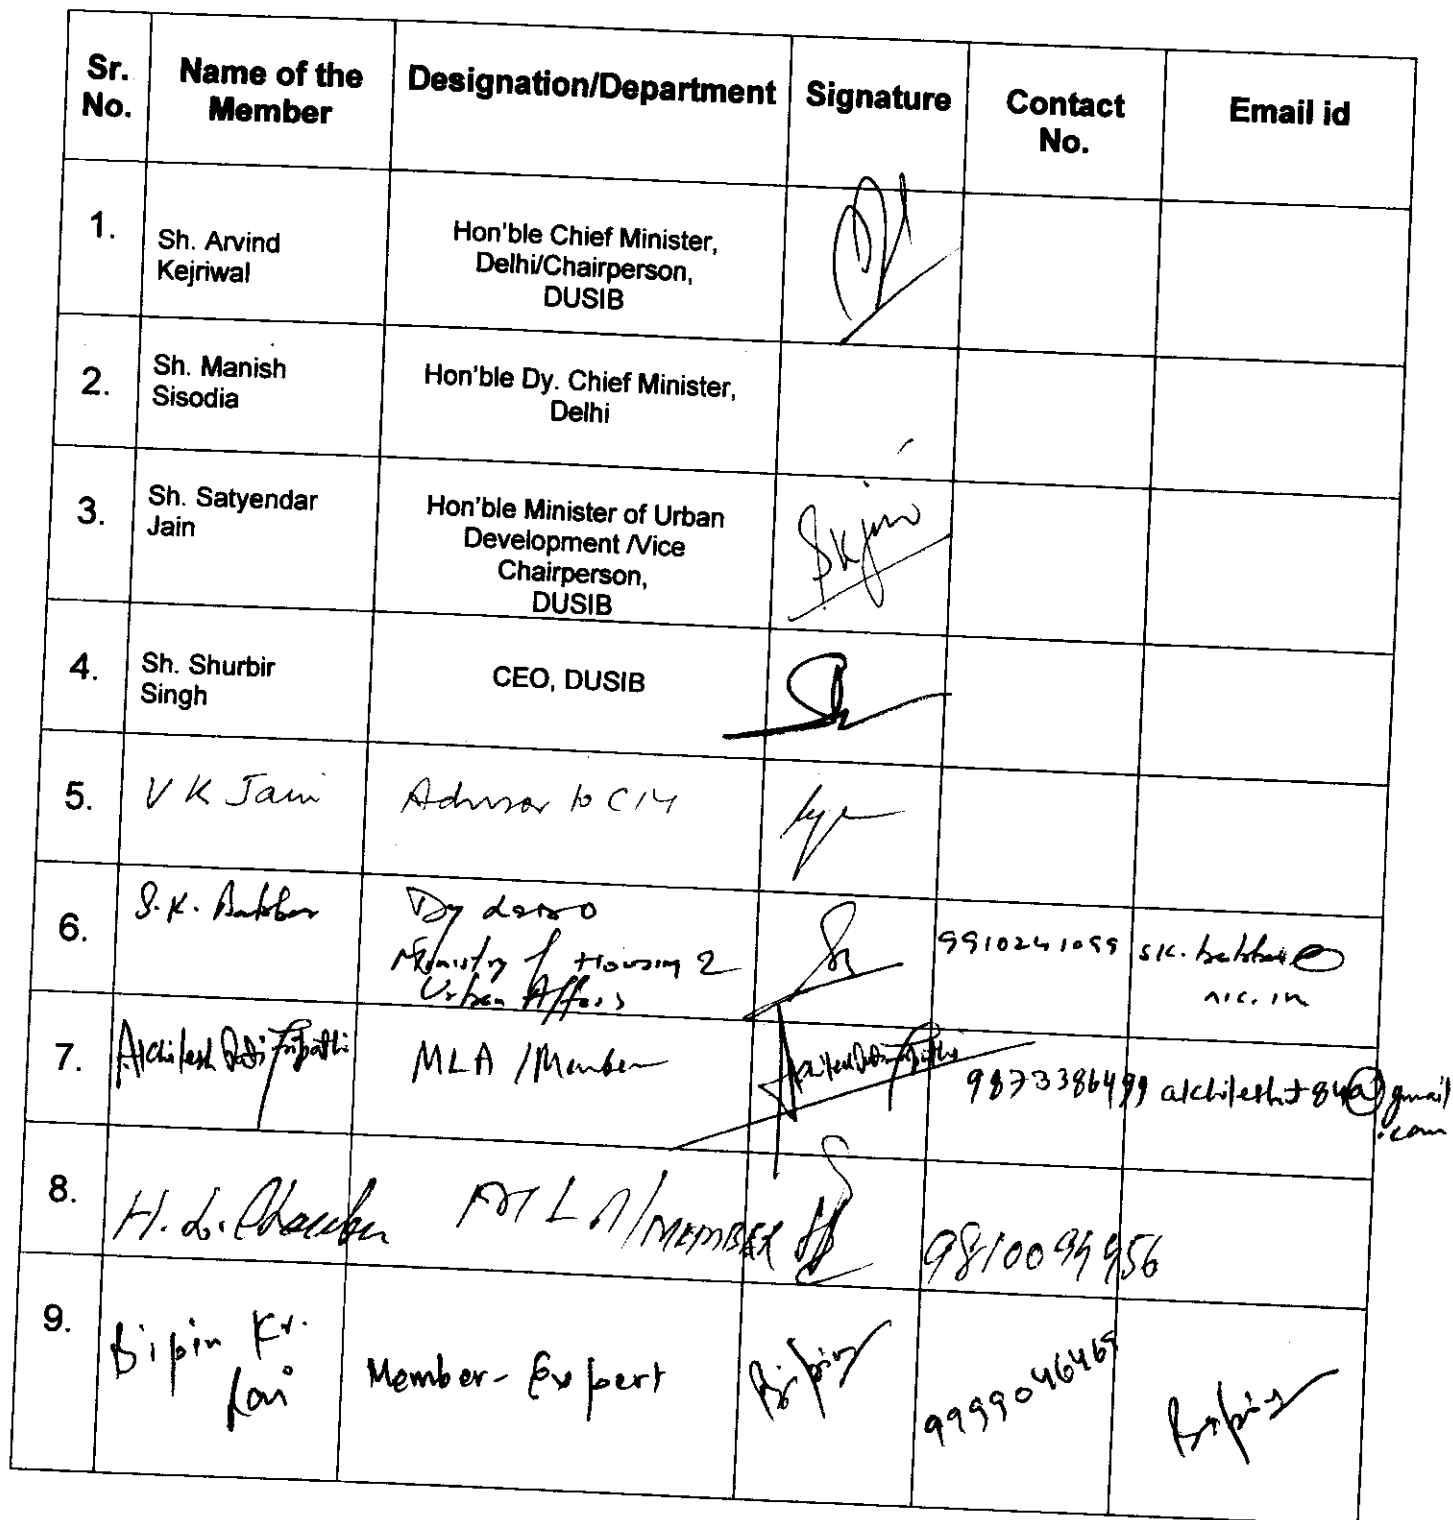 Sr. No. Name of the Member Designation/Department Signature Contact No. Email id
1. Sh. Arvind Kejriwal
Hon'ble Chief Minister,
Delhi/Chairperson,
DUSIB
2. Sh. Manish Sisodia
Hon'ble Dy. Chief Minister,
Delhi
3. Sh. Satyendar Jain
Hon'ble Minister of Urban
Development /Vice
Chairperson,
DUSIB
SKJain
4. Sh. Shurbir Singh
CEO, DUSIB
5. V K Jain Advisor to CM
6. S.K. Babbar
Dy
Ministry of Housing &
Urban Affairs
9910241099 sk.babbar@
nic.in
7. Akhilesh Pati Tripathi MLA/Member Akhilesh Pati Tripathi 9873386499 akhilesht84@gmail
.com
8. H. L. MLA/MEMBER
9. Bipin Kr.
Rai
Member-Expert Bipin 9999046469 Bipin